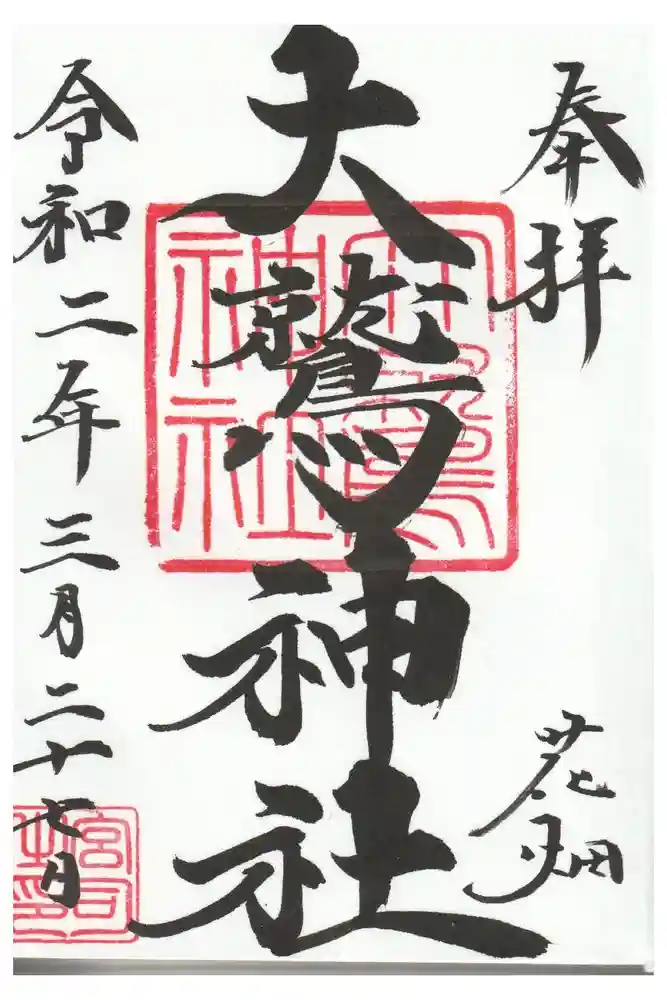 奉拝
花畑
大鷲神社
大鷲神社
令和二年三月二十七日
宮司之印